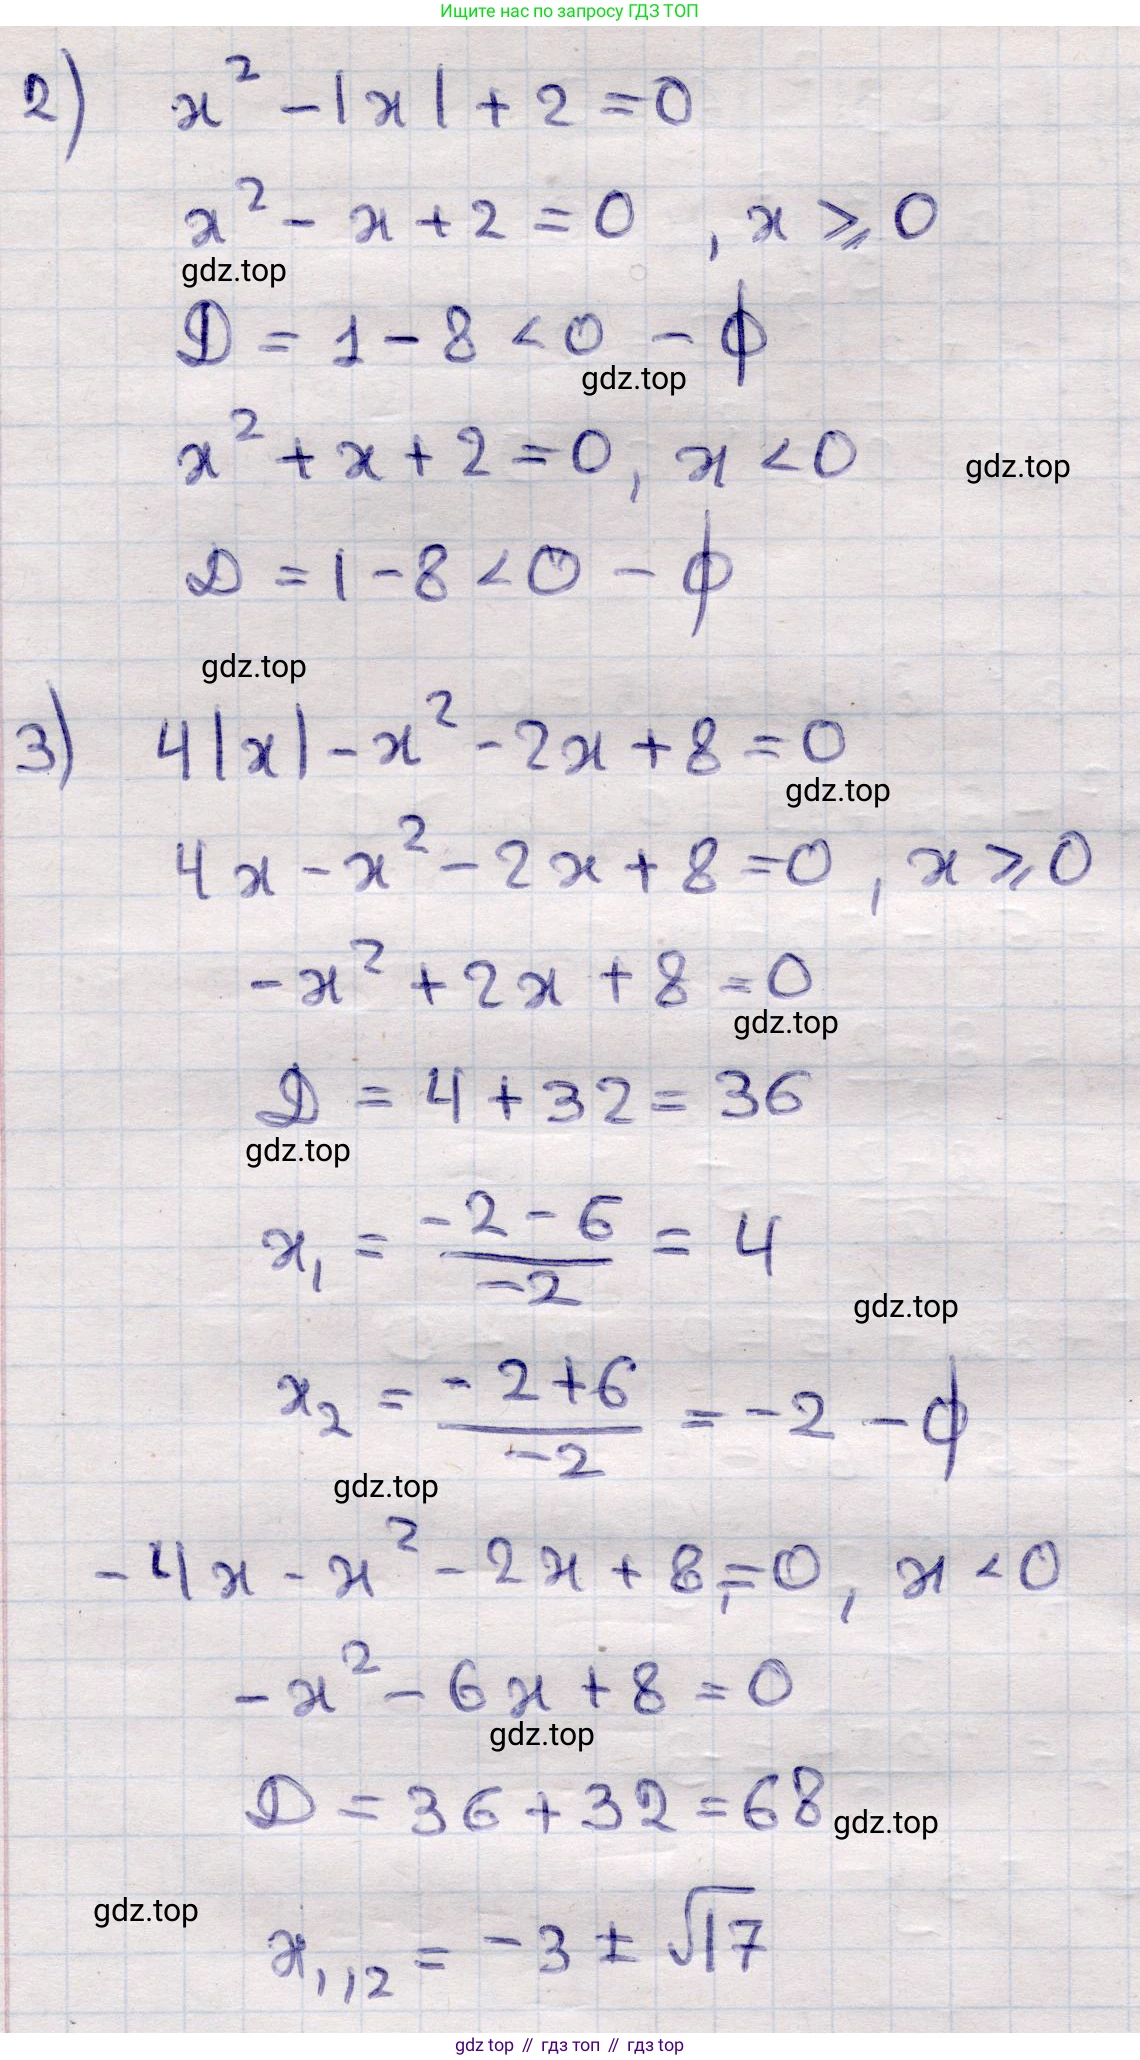 Ищите нас по запросу ГДЗ ТОП
2) x² - |x| + 2 = 0
x² - x + 2 = 0 , x ⩾ 0
gdz.top
D = 1 - 8 < 0 - ϕ
gdz.top
x² + x + 2 = 0, x < 0
gdz.top
D = 1 - 8 < 0 - ϕ
gdz.top
3) 4|x| - x² - 2x + 8 = 0
gdz.top
4x - x² - 2x + 8 = 0 , x ⩾ 0
-x² + 2x + 8 = 0
gdz.top
D = 4 + 32 = 36
gdz.top
x₁ = (-2 - 6)/(-2) = 4
gdz.top
x₂ = (-2 + 6)/(-2) = -2 - ϕ
gdz.top
-4x - x² - 2x + 8 = 0, x < 0
-x² - 6x + 8 = 0
gdz.top
D = 36 + 32 = 68
gdz.top
gdz.top
x₁,₂ = -3 ± √17
gdz top // гдз топ // гдз top